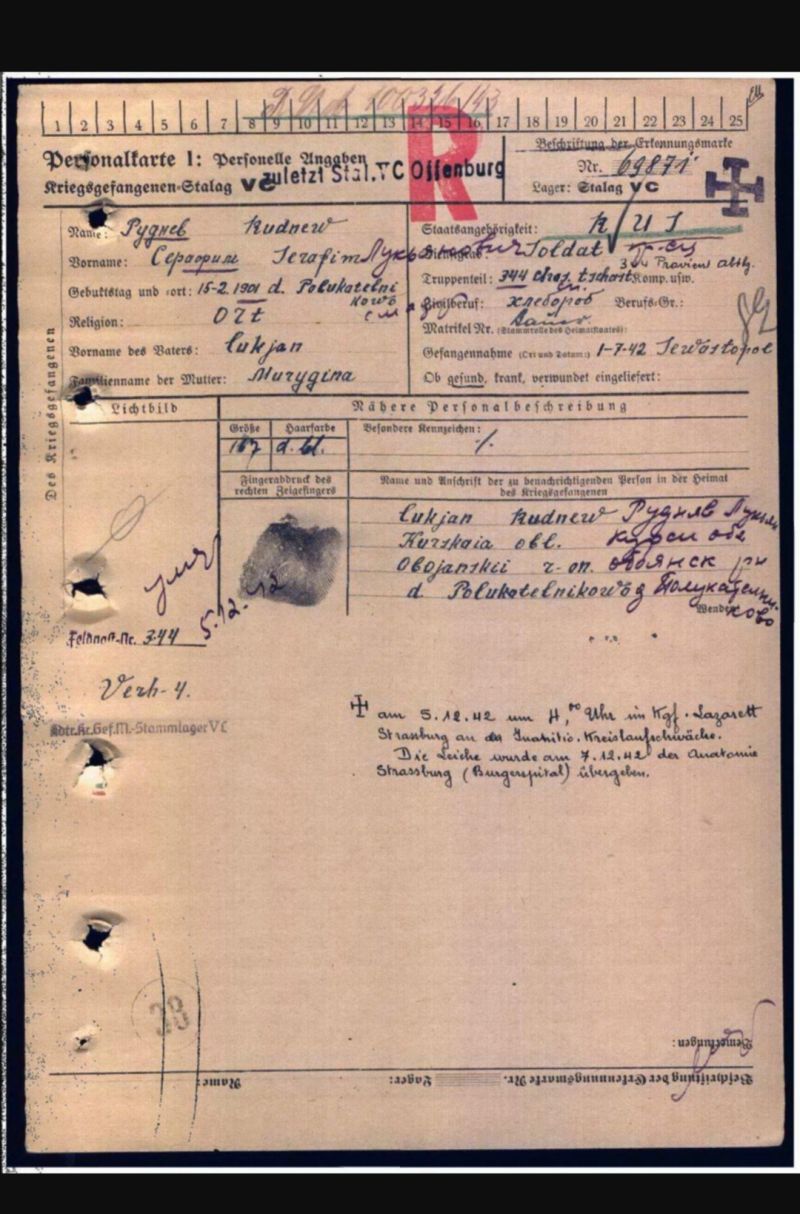 1 2 3 4 5 6 7 8 9 10 11 12 13 14 15 16 17 18 19 20 21 22 23 24 25
R
Personalkarte I: Personelle Angaben
Kriegsgefangenen-Stalag VC
zuletzt Stal. VC Offenburg
Beschriftung der Erkennungsmarke
Nr. 69871
Lager: Stalag VC
Des Kriegsgefangenen
Name: Руднев Rudnew
Vorname: Серафим Serafim Лукьянович
Geburtstag und -ort: 15-2. 1901 d. Polukatelni
kowo
Religion: Ort
Vorname des Vaters: Lukjan
Familienname der Mutter: Murygina
Staatsangehörigkeit: RUS
Dienstgrad: Soldat
Truppenteil: 344 Komp. usw.
Zivilberuf: хлебороб Berufs-Gr.:
Bauer
Matrikel Nr. (Stammrolle des Heimatstaates):
Gefangennahme (Ort und Datum): 1-7-42 Sewostopol
Ob gesund, krank, verwundet eingeliefert:
Lichtbild
Nähere Personalbeschreibung
Größe Haarfarbe Besondere Kennzeichen:
167 d. bl. ./.
Fingerabdruck des
rechten Zeigefingers
Name und Anschrift der zu benachrichtigenden Person in der Heimat
des Kriegsgefangenen
Lukjan Rudnew Руднев Лукьян
Kurskaia obl. курск обл
Obojanskii r-on. обоянск рн
d Polukotelnikowo д Полукательни-
ково
Wenden
умер
5.12.42
Feldpost-Nr. 344
Verh-4.
Kdtr. Kr. Gef. M.-Stammlager V C
am 5.12.42 um 4,00 Uhr im Kgf.-Lazarett
Strassburg an Kreislaufschwäche.
Die Leiche wurde am 7.12.42 der Anatomie
Strassburg (Bürgerspital) übergeben.
38
Bemerkungen:
Name: Lager: Beschriftung der Erkennungsmarke Nr.